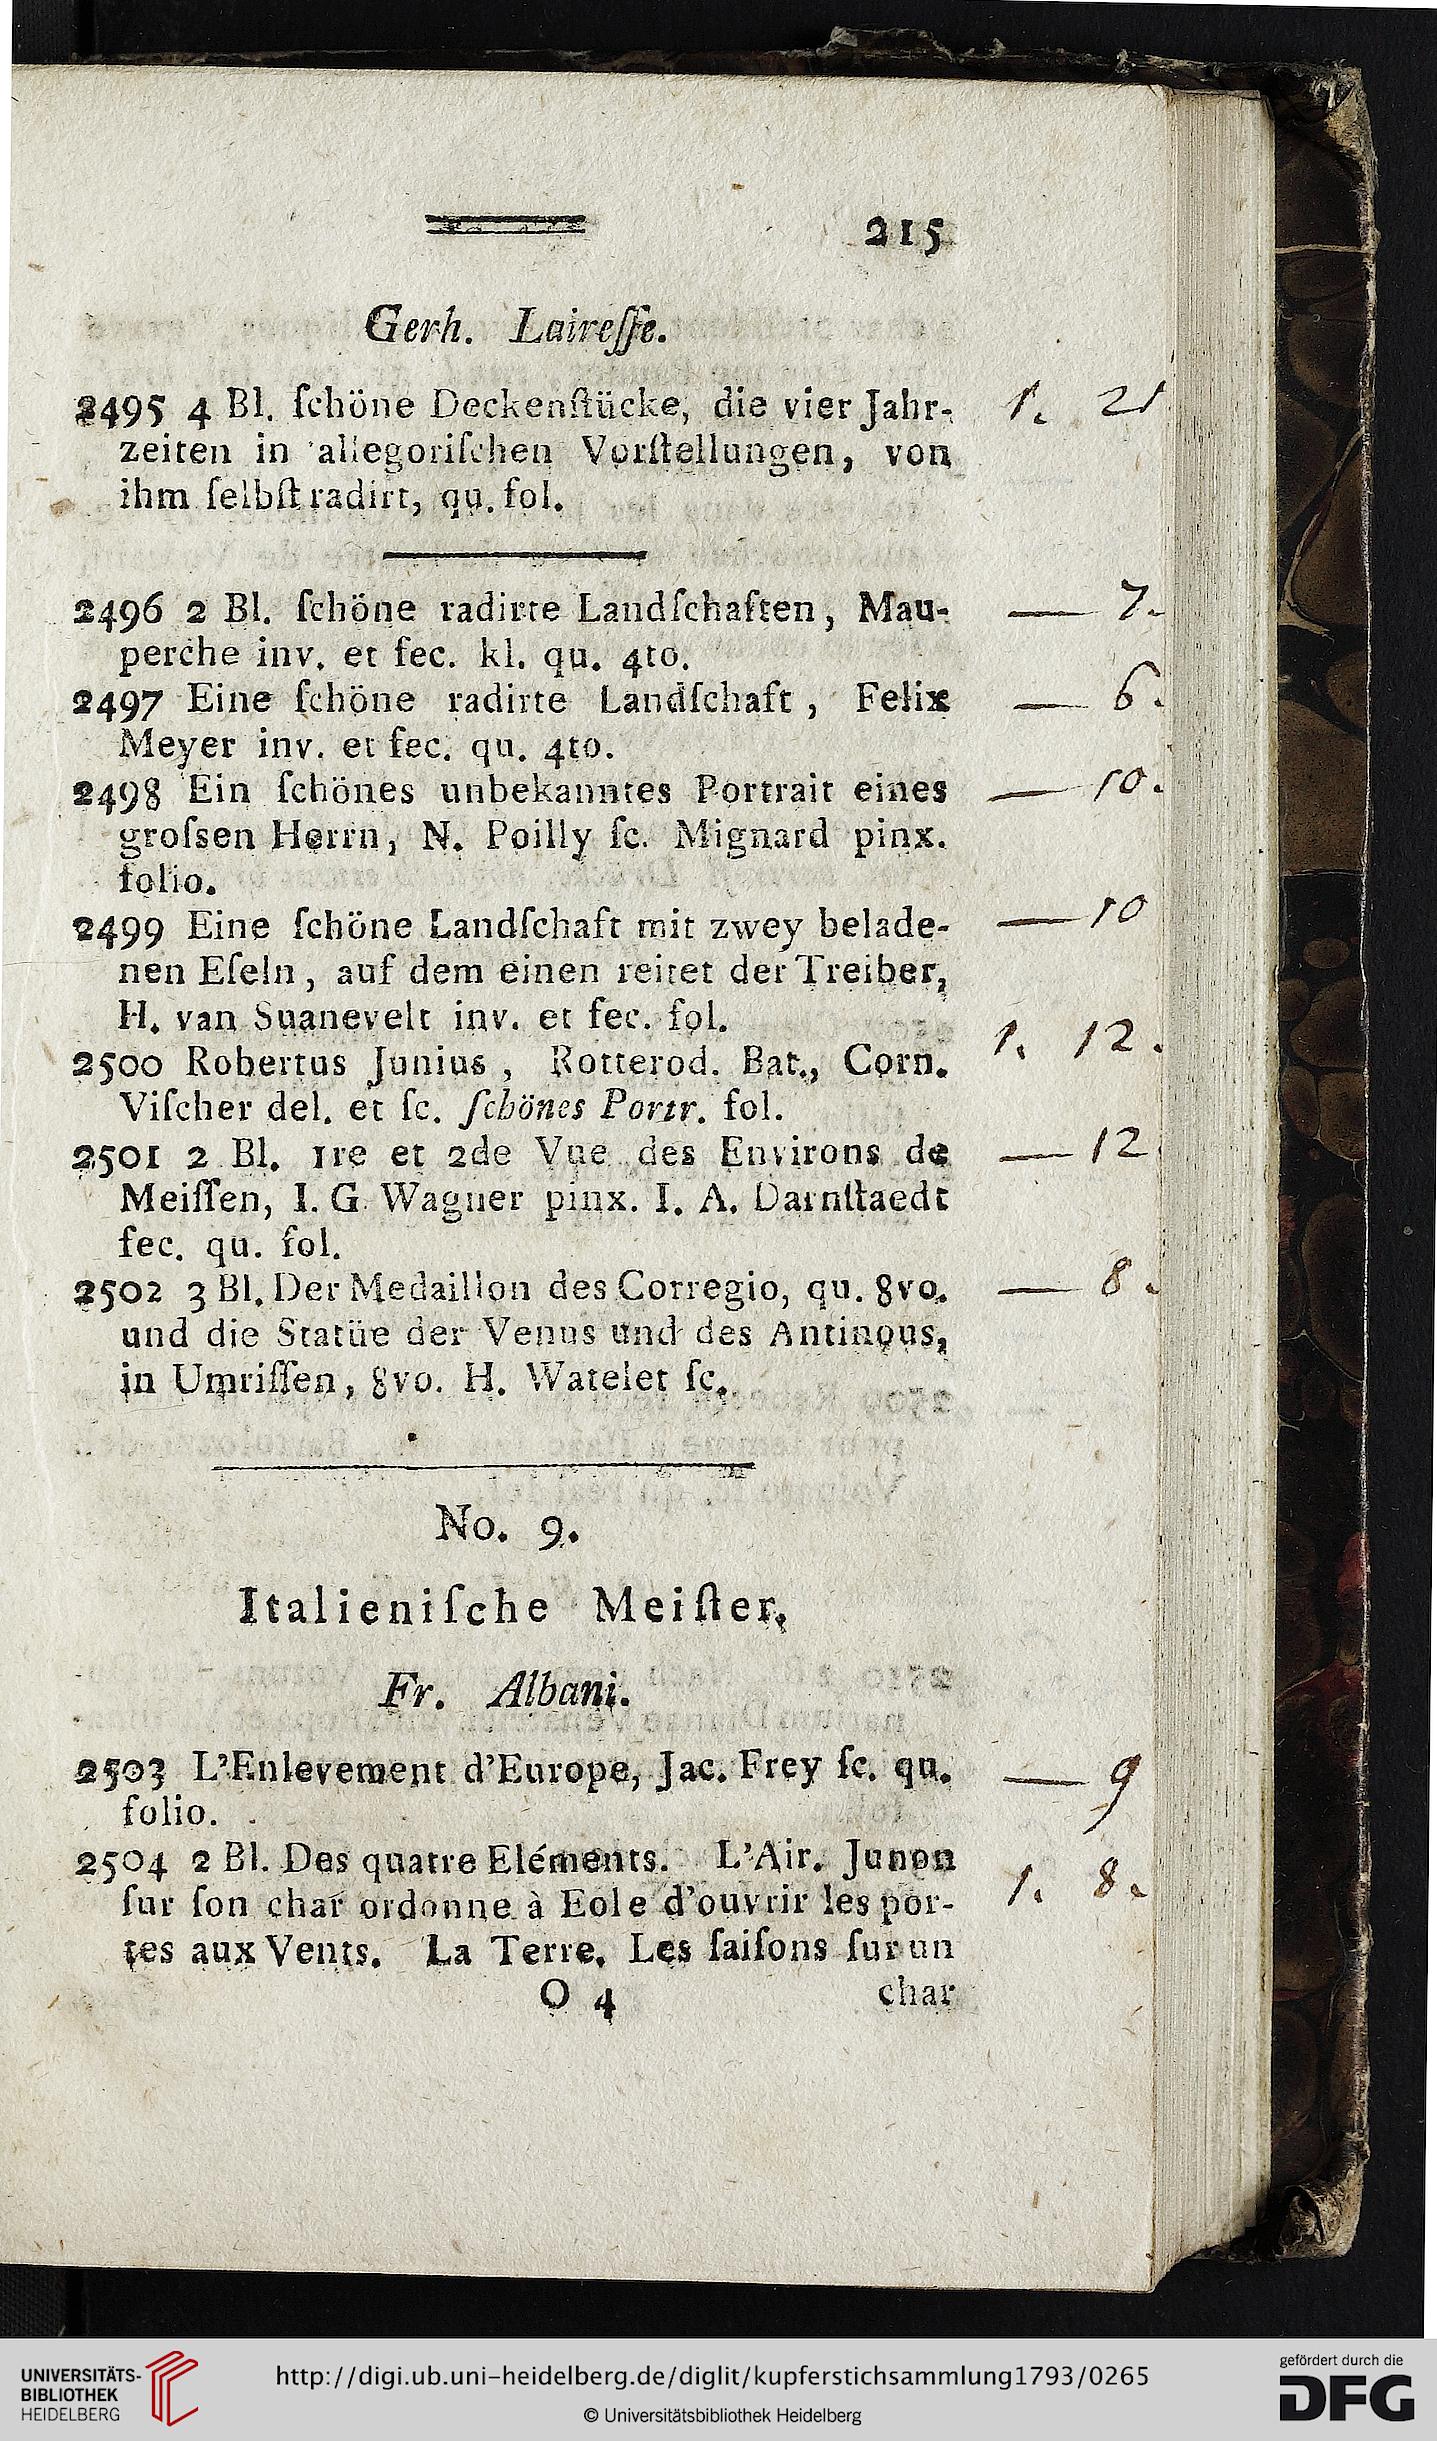 215
Gerh. Laireſſe.
2495 4 Bl. ſchöne Deckenſtücke, die vier Jahr- 1. 21
zeiten in allegoriſchen Vorſtellungen, von
ihm ſelbſt radirt, qu. fol.
2496 2 Bl. ſchöne radirte Landſchaften, Mau- — 7.
perche inv. et fec. kl. qu. 4to.
2497 Eine ſchöne radirte Landſchaft, Felix — 6.
Meyer inv. et fec. qu. 4to.
2498 Ein ſchönes unbekanntes Portrait eines — 10.
groſsen Herrn, N. Poilly ſc. Mignard pinx.
folio.
2499 Eine ſchöne Landſchaft mit zwey belade- — 10
nen Eſeln, auf dem einen reitet der Treiber,
H. van Suanevelt inv. et fec. fol.
2500 Robertus Junius, Rotterod. Bat., Corn. 1. 12.
Viſcher del. et ſc. ſchönes Portr. fol.
2501 2 Bl. 1re et 2de Vue des Environs de — 12
Meiſſen, I. G Wagner pinx. I. A. Darnſtaedt
fec. qu. fol.
2502 3 Bl. Der Medaillon des Corregio, qu. 8vo. — 8.
und die Statüe der Venus und des Antinous,
in Umriſſen, 8vo. H. Watelet ſc.
No. 9.
Italieniſche Meiſter.
Fr. Albani.
2503 L'Enlevement d'Europe, Jac. Frey ſc. qu. — 9
folio.
2504 2 Bl. Des quatre Eléments. L'Air. Junon 1. 8.
ſur ſon char ordonne à Eole d'ouvrir les por-
tes aux Vents. La Terre. Les ſaiſons ſur un
O 4 char
UNIVERSITÄTS-
BIBLIOTHEK
HEIDELBERG
http://digi.ub.uni-heidelberg.de/diglit/kupferstichsammlung1793/0265
© Universitätsbibliothek Heidelberg
gefördert durch die
DFG